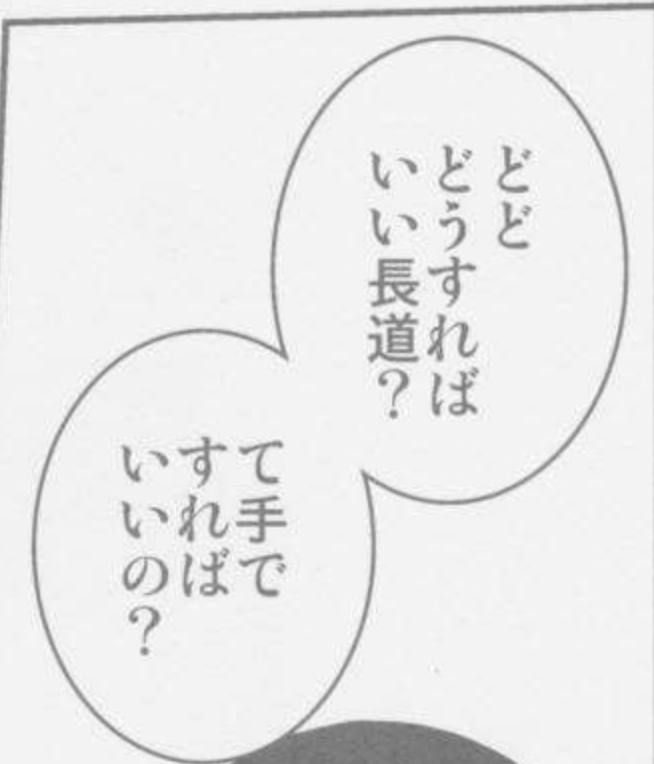 どど
どうすれば
いい長道？
て手で
すれば
いいの？